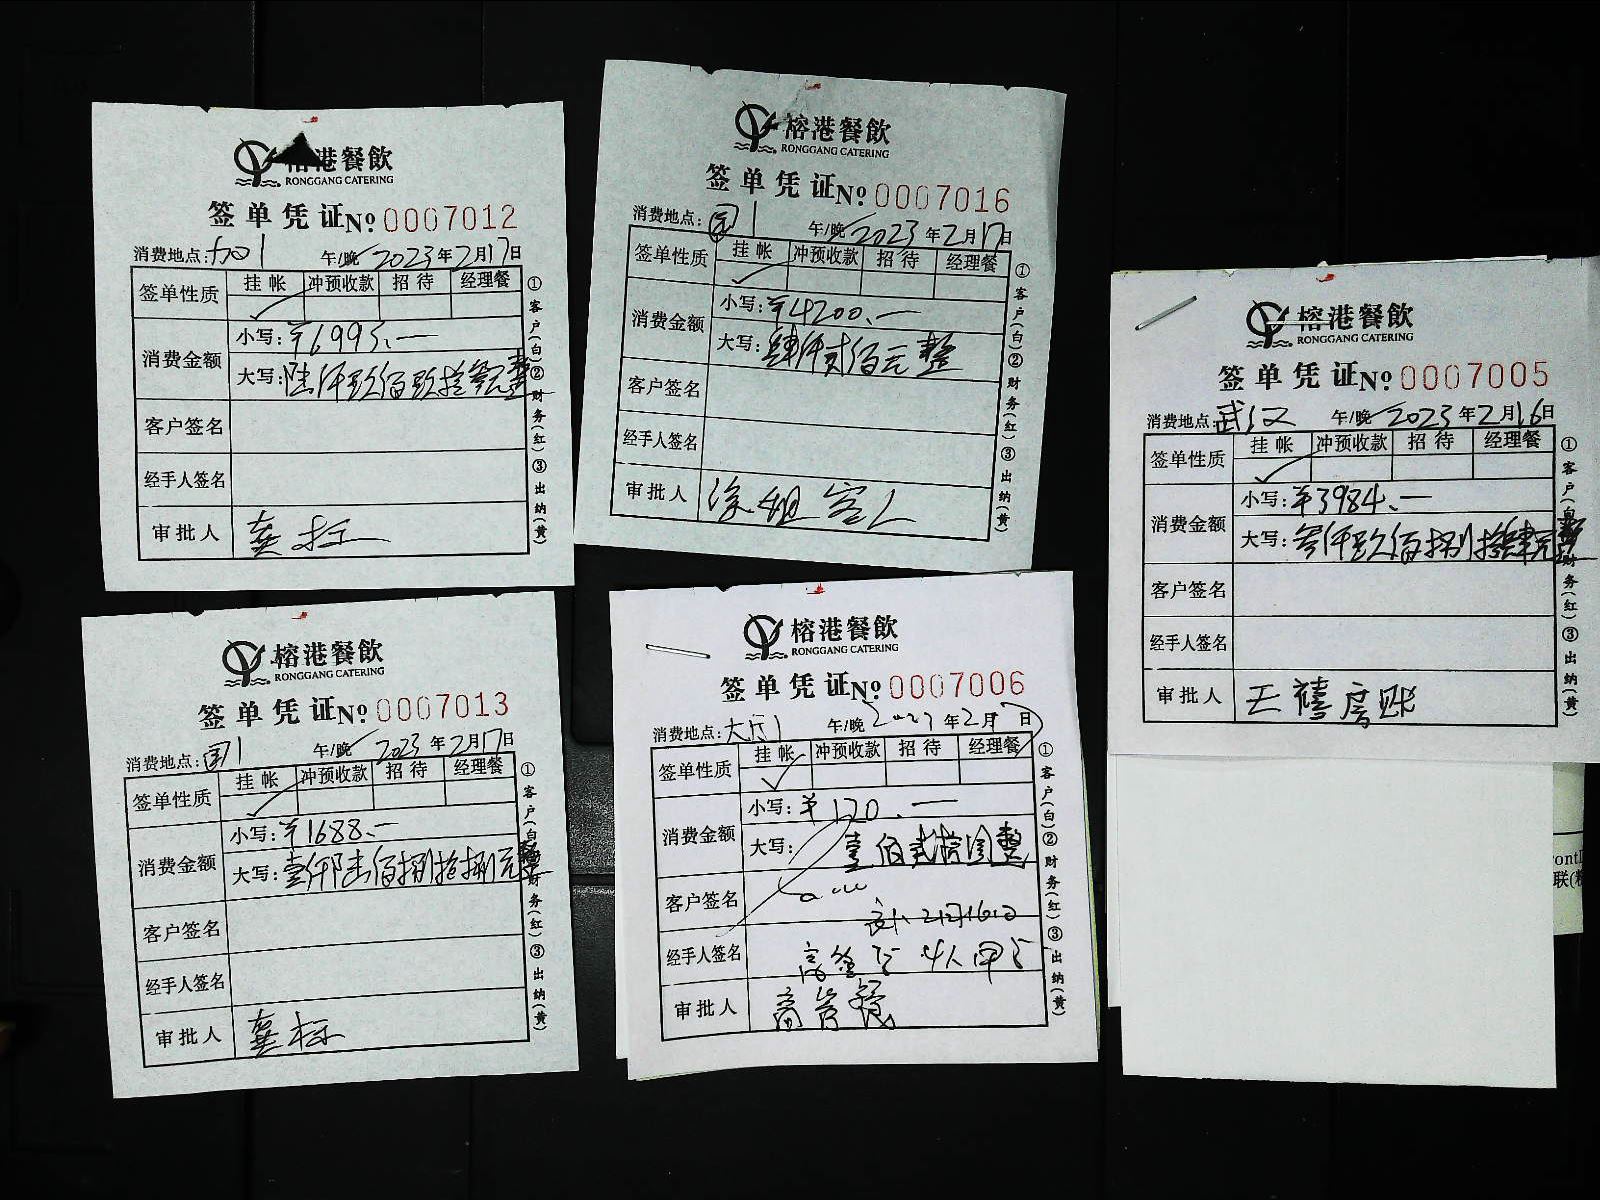 榕港餐飲
RONGGANG CATERING
签单凭证№ 0007012
消费地点: 加01 午/晚 2023年2月17日
签单性质 挂帐 冲预收款 招待 经理餐
消费金额 小写:￥6993.一
大写:陆仟玖佰玖拾叁元整
客户签名
经手人签名
审批人 龚标
①客户(白)②财务(红)③出纳(黄)
榕港餐飲
RONGGANG CATERING
签单凭证№ 0007016
消费地点: 午/晚 2023年2月17日
签单性质 挂帐 冲预收款 招待 经理餐
消费金额 小写:￥4200.一
大写:肆仟贰佰元整
客户签名
经手人签名
审批人 涂姐客人
①客户(白)②财务(红)③出纳(黄)
榕港餐飲
RONGGANG CATERING
签单凭证№ 0007005
消费地点:武汉 午/晚 2023年2月16日
签单性质 挂帐 冲预收款 招待 经理餐
消费金额 小写:￥3984.一
大写:叁仟玖佰捌拾肆元整
客户签名
经手人签名
审批人 王禧房账
①客户(白)②财务(红)③出纳(黄)
榕港餐飲
RONGGANG CATERING
签单凭证№ 0007013
消费地点: 午/晚 2023年2月17日
签单性质 挂帐 冲预收款 招待 经理餐
消费金额 小写:￥1688.一
大写:壹仟陆佰捌拾捌元整
客户签名
经手人签名
审批人 龚标
①客户(白)②财务(红)③出纳(黄)
榕港餐飲
RONGGANG CATERING
签单凭证№ 0007006
消费地点:大厅1 午/晚 年2月 日
签单性质 挂帐 冲预收款 招待 经理餐
消费金额 小写:￥120.一
大写: 壹佰贰拾圆整
客户签名
2月16日
经手人签名
审批人 高管餐
①客户(白)②财务(红)③出纳(黄)